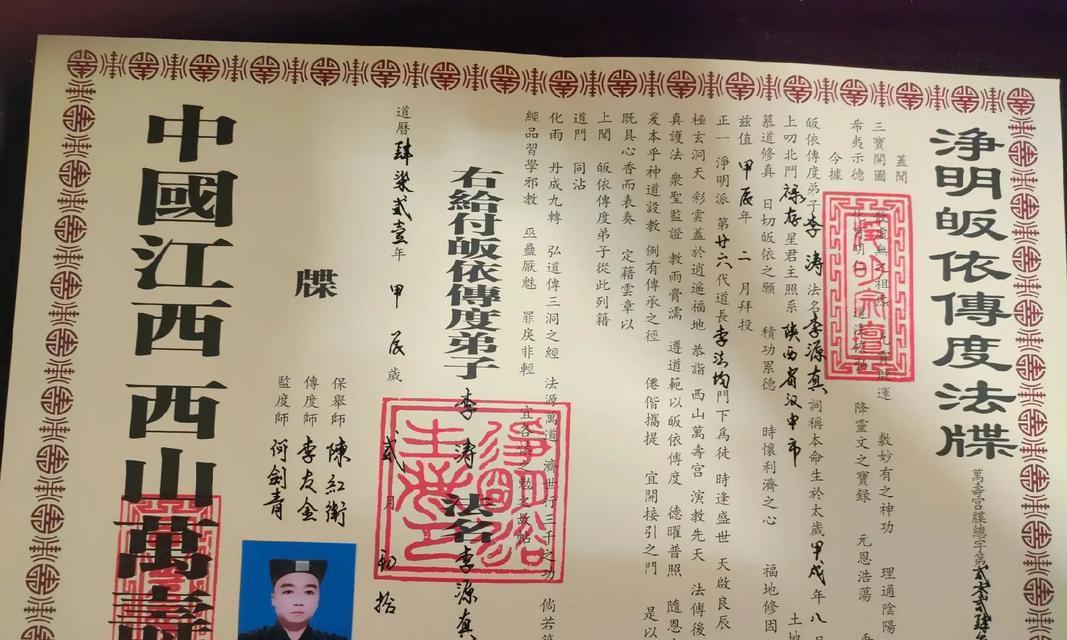 浄明皈依傳度法牒
萬壽宮牒總字第貳零貳肆
蓋聞
三寶開圖 啟運 敷妙有之神功 理通陰陽
希夷示德 降靈文之寶錄 元恩浩蕩
今據
皈依傳度弟子李涛法名李源真 詞稱本命生於太歲甲戌年八
上叨北鬥禄存星君主照系陕西省汉中市 土地
慕道修真 日切皈依之願 積功累德 時懷利濟之心 福地修因
茲值甲辰年二月拜投
正一淨明派第廿六代道長李法均門下為徒 時逢盛世 天啟良辰
極玄洞天 彩雲蓋於逍遥福地 恭詣 西山萬壽宮 演教先天 法傳後
真護法 衆聖監證 教雨膏濡 遵道範以皈依傳度 德曜普照 隨恩
爰本乎神道設教 例有傳承之徑 僊偕攜提 宜開接引之門 是以
既具心香而表奏 定藉雲章以
上聞 皈依傳度弟子從此列籍
道門 同沾
化雨 丹成九轉 弘道傳三洞之經 法源萬道 濟世行三千之功 倘若
經品習學邪教 巫蠱厭魅 罪戾非輕 宜各 之勅之故帖
右給付皈依傳度弟子李涛 法名李源真
道曆肆柒貳壹年甲辰歲貳月初拾
牒
保舉師 陳紅衛
傳度師 李友金
監度師 何劍青
中國江西西山萬壽